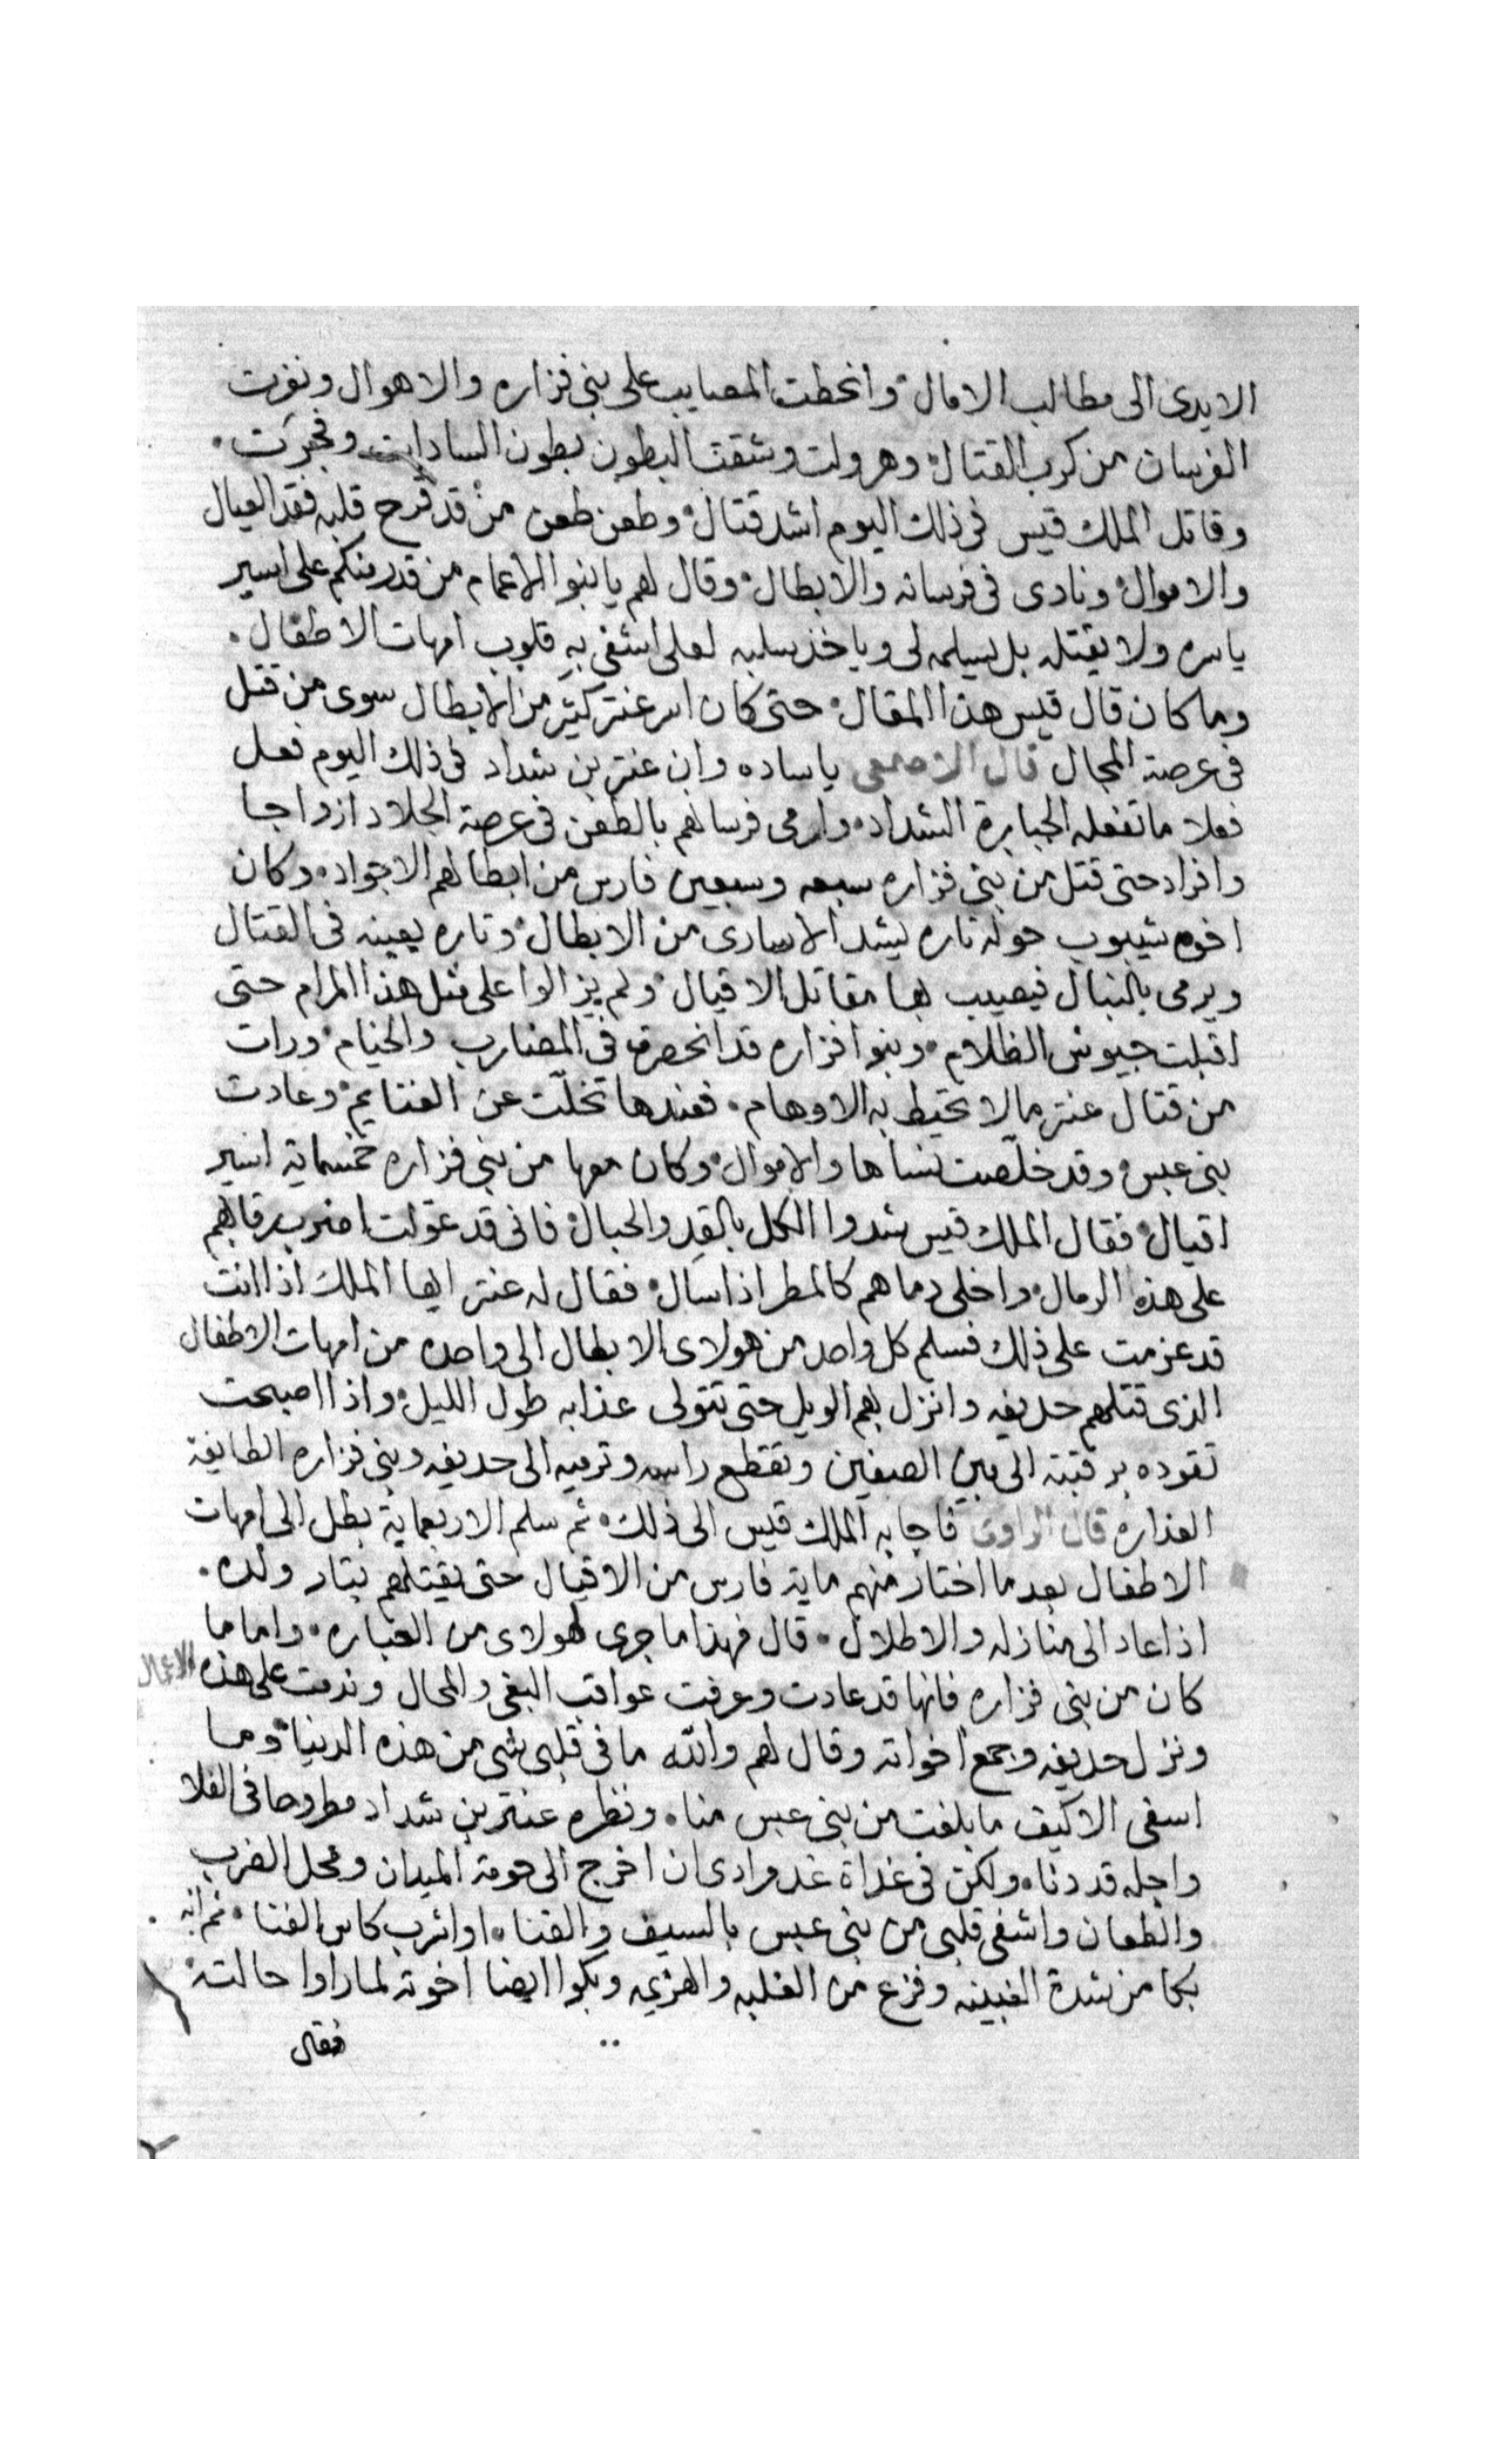 الايدى الى مطالب الامال وانحطت المصايب على بنى فزاره والاهوال ونفرت
الفرسان من كرب القتال وهرولت وشقت البطون بطون السادات وفجرت
وقاتل الملك قيس فى ذلك اليوم اشد قتال وطعن طعن من قد قرح قلبه فقد العيال
والاموال ونادى فى فرسانه والابطال وقال لهم يا بنوا الاعمام من قدر منكم على اسير
ياسره ولا يقتله بل يسلمه لى وياخذ سلبه لعلى اشفى به قلوب امهات الاطفال
وما كان قال قيس هذا المقال حتى كان اسر عنتر كثير من الابطال سوى من قتل
فى عرصة المجال قال الاصمعى ياساده وان عنتر بن شداد فى ذلك اليوم فعل
فعلا ما تفعله الجبابرة الشداد وارمى فرسانهم بالطعن فى عرصة الجلاد ازواجا
وافراد حتى قتل من بنى فزاره سبعه وسبعين فارس من ابطالهم الاجواد وكان
اخوه شيبوب حوله تاره يشد الاسارى من الابطال وتاره يعينه فى القتال
ويرمى بالنبال فيصيب بها مقاتل الاقيال ولم يزالوا على مثل هذا المرام حتى
اقبلت جيوش الظلام وبنوا فزاره قد انحصرت فى المضارب والخيام ورات
من قتال عنتر ما لا تحيط به الاوهام فعندها تخلت عن الغنايم وعادت
بنى عبس وقد خلصت نساها والاموال وكان معها من بنى فزاره خمسماية اسير
اقيال فقال الملك قيس شدوا الكل بالقد والحبال فانى قد عولت اضرب رقابهم
على هذه الرمال واخلى دماهم كالمطر اذا سال فقال له عنتر ايها الملك اذا انت
قد عزمت على ذلك فسلم كل واحد من هولاى الابطال الى واحده من امهات الاطفال
الذى قتلهم حديفه وانزل بهم الويل حتى تتولى عذابه طول الليل واذا اصبحت
تقوده برقبته الى بين الصفين وتقطع راسه وترميه الى حديفه وبنى فزاره الطايفة
الغداره قال الراوى فاجابه الملك قيس الى ذلك ثم سلم الاربعماية بطل الى امهات
الاطفال بعد ما اختار منهم ماية فارس من الاقيال حتى يقتلهم بتار ولده
اذا عاد الى منازله والاطلال قال فهذا ما جرى لهولاى من العباره واما ما
كان من بنى فزاره فانها قد عادت وعرفت عواقب البغى والمحال وندمت على هذه الاعمال
ونزل حديفه وجمع اخواته وقال لهم والله ما فى قلبى شى من هذه الدنيا وما
اسفى الا كيف ما بلغت من بنى عبس منا ونظره عنتر بن شداد مطروحا فى الفلا
واجله قد دنا ولكن فى غداة غد مرادى ان اخرج الى حومة الميدان ومحل الضرب
والطعان واشفى قلبى من بنى عبس بالسيف والقنا او اشرب كاس الفنا ثم انه
بكا من شدة الغبينه وفزع من الغلبه والهزيمه وبكوا ايضا اخوته لما راوا حالته
فقال